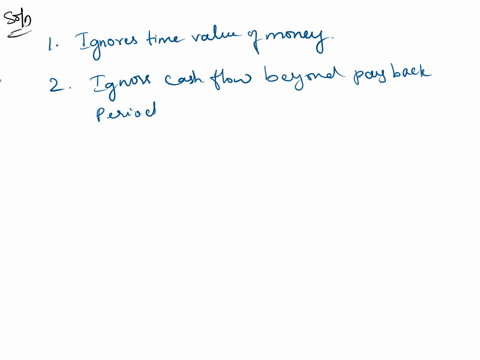 Soln
1. Ignores time value of money.
2. Ignors cash flow beyond payback
Period